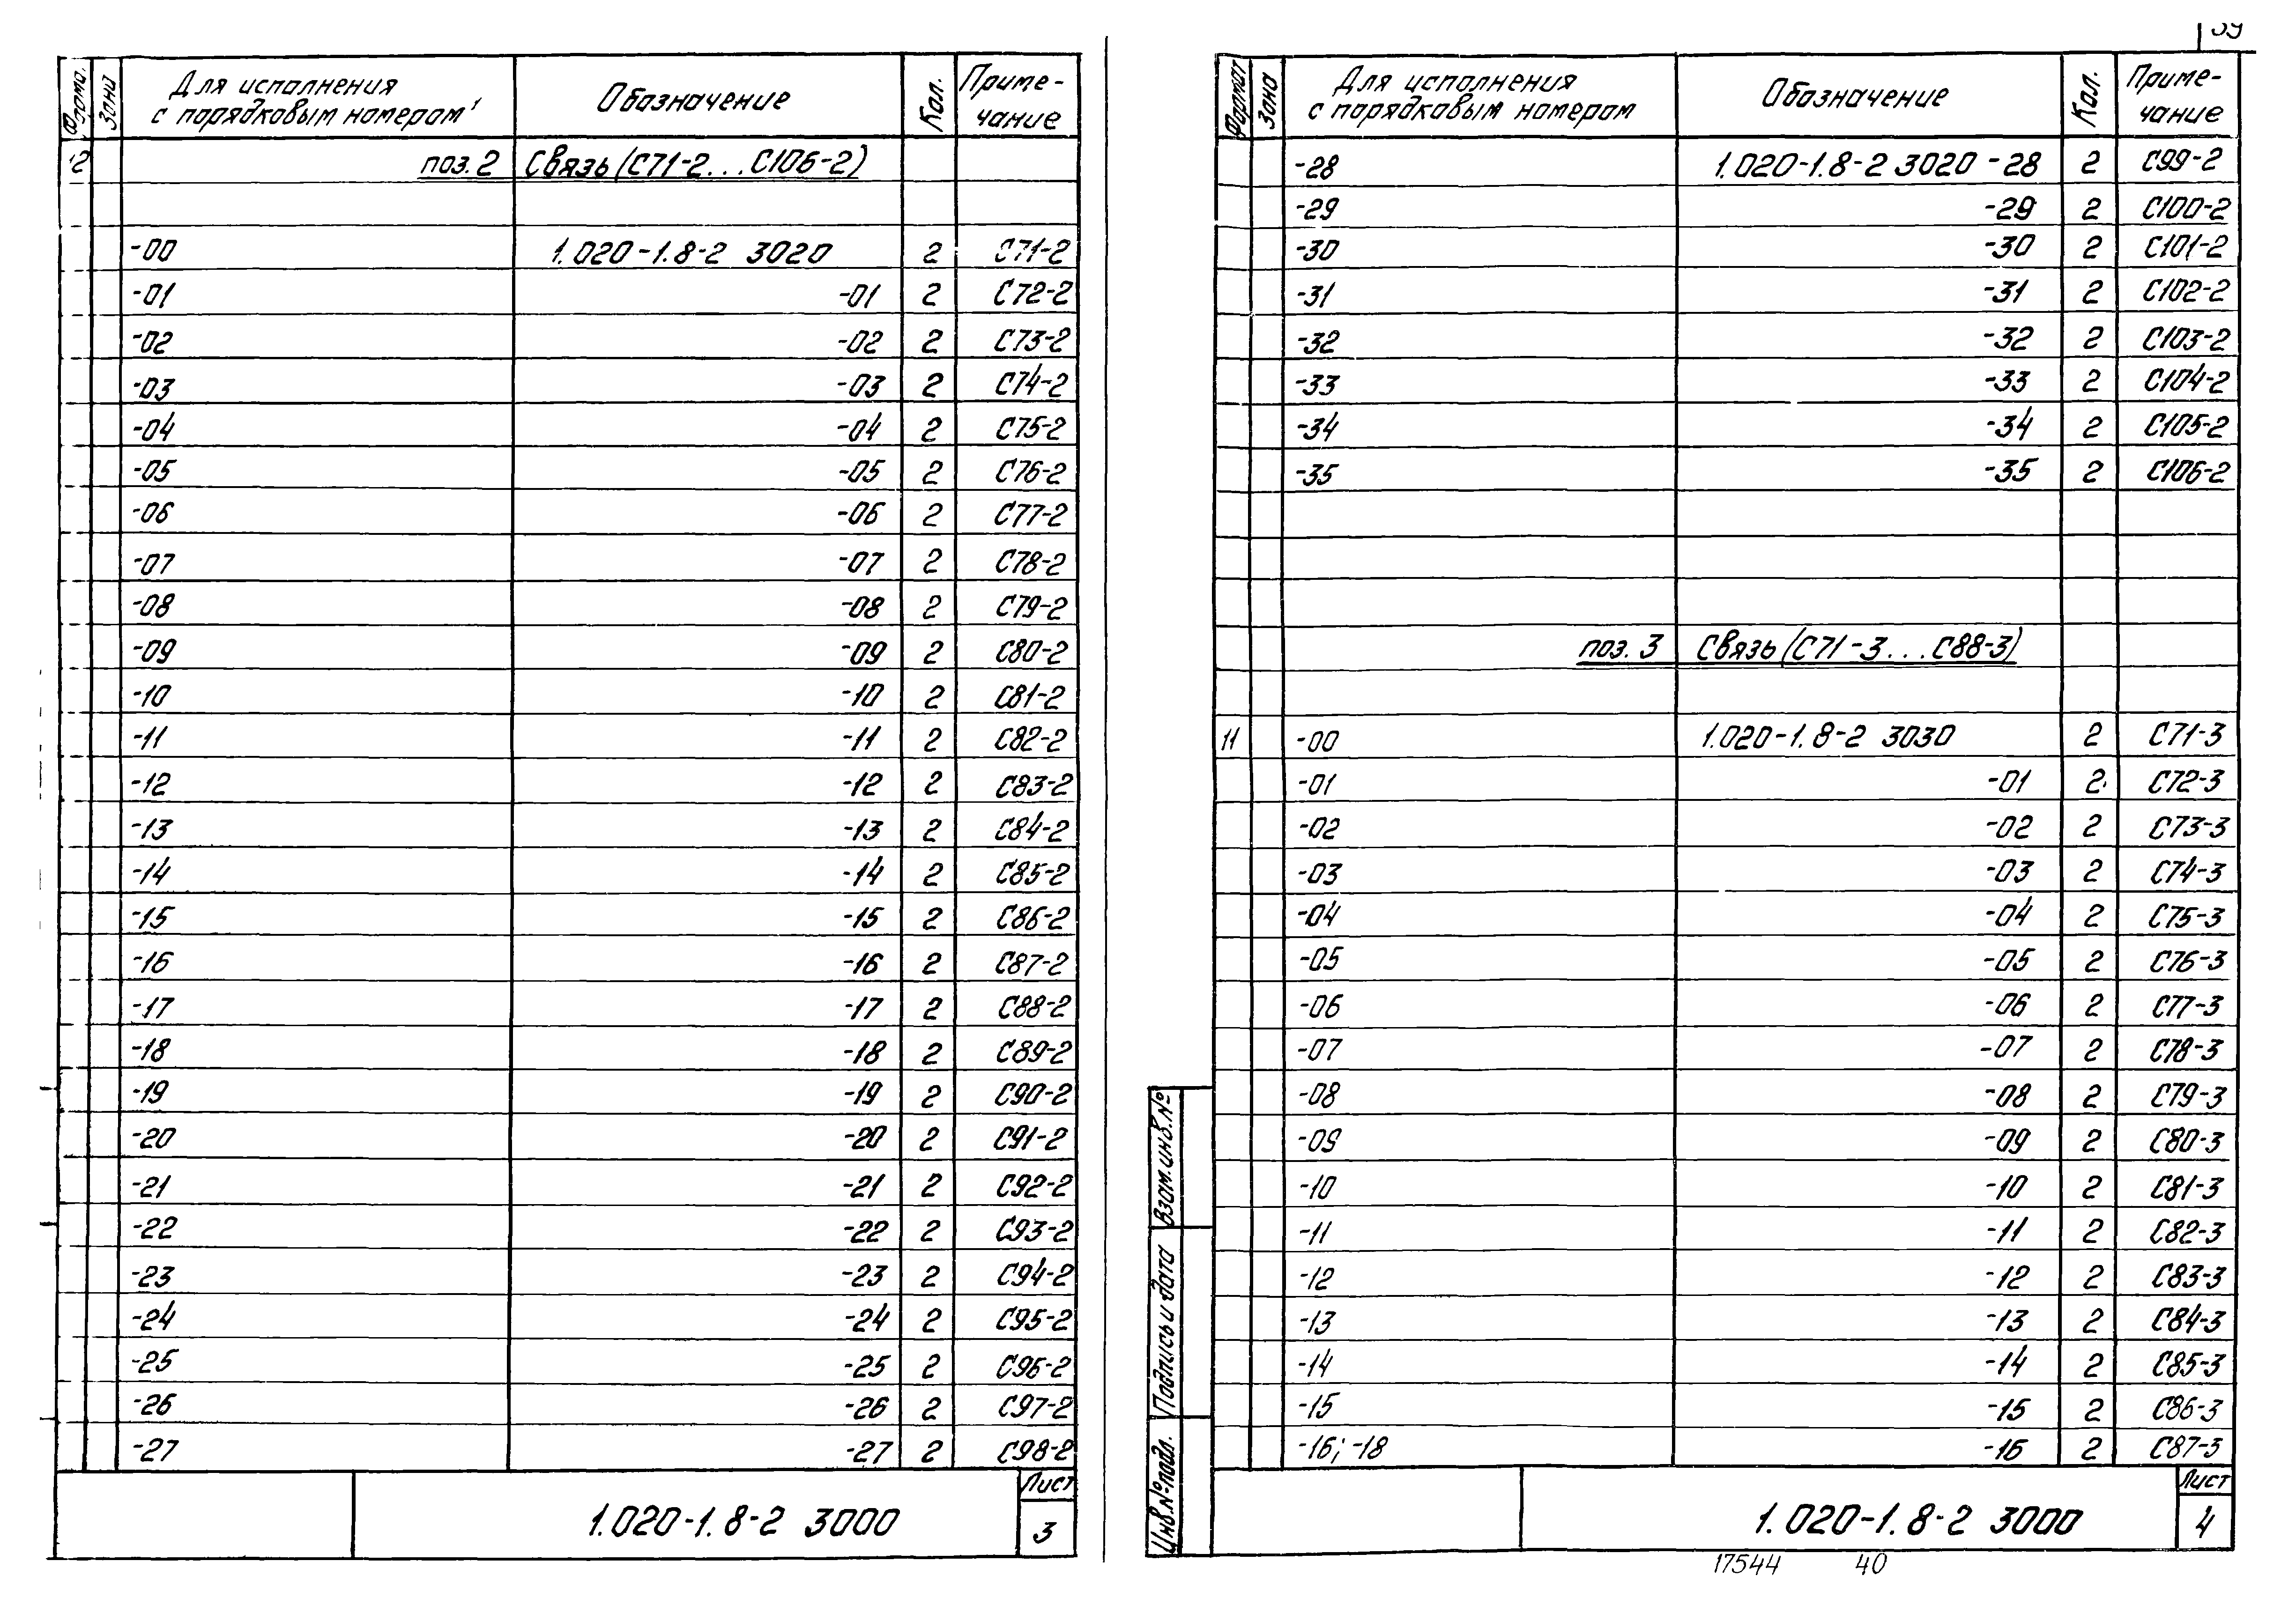 39
Формат Зона Для исполнения с порядковым номером Обозначение Кол. Приме-чание
12 поз. 2 Связь (С71-2...С106-2)
-00 1.020-1.8-2 3020 2 С71-2
-01 -01 2 С72-2
-02 -02 2 С73-2
-03 -03 2 С74-2
-04 -04 2 С75-2
-05 -05 2 С76-2
-06 -06 2 С77-2
-07 -07 2 С78-2
-08 -08 2 С79-2
-09 -09 2 С80-2
-10 -10 2 С81-2
-11 -11 2 С82-2
-12 -12 2 С83-2
-13 -13 2 С84-2
-14 -14 2 С85-2
-15 -15 2 С86-2
-16 -16 2 С87-2
-17 -17 2 С88-2
-18 -18 2 С89-2
-19 -19 2 С90-2
-20 -20 2 С91-2
-21 -21 2 С92-2
-22 -22 2 С93-2
-23 -23 2 С94-2
-24 -24 2 С95-2
-25 -25 2 С96-2
-26 -26 2 С97-2
-27 -27 2 С98-2
1.020-1.8-2 3000 Лист 3
Формат Зона Для исполнения с порядковым номером Обозначение Кол. Приме-чание
-28 1.020-1.8-2 3020 -28 2 С99-2
-29 -29 2 С100-2
-30 -30 2 С101-2
-31 -31 2 С102-2
-32 -32 2 С103-2
-33 -33 2 С104-2
-34 -34 2 С105-2
-35 -35 2 С106-2
поз. 3 Связь (С71-3...С88-3)
11 -00 1.020-1.8-2 3030 2 С71-3
-01 -01 2 С72-3
-02 -02 2 С73-3
-03 -03 2 С74-3
-04 -04 2 С75-3
-05 -05 2 С76-3
-06 -06 2 С77-3
-07 -07 2 С78-3
-08 -08 2 С79-3
-09 -09 2 С80-3
-10 -10 2 С81-3
-11 -11 2 С82-3
-12 -12 2 С83-3
-13 -13 2 С84-3
-14 -14 2 С85-3
-15 -15 2 С86-3
-16; -18 -16 2 С87-3
Взам. инв. №
Подпись и дата
Инв. № подл.
1.020-1.8-2 3000 Лист 4
17544 40